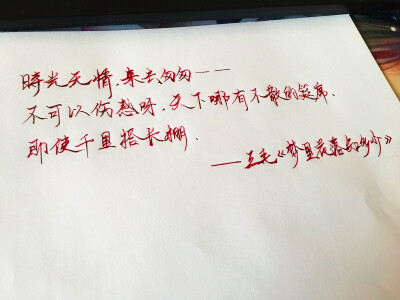 時光无情，来去匆匆——
不可以伤感呀，天下哪有不散的筵席，
即使千里搭长棚．
——三毛《梦里花落知多少》